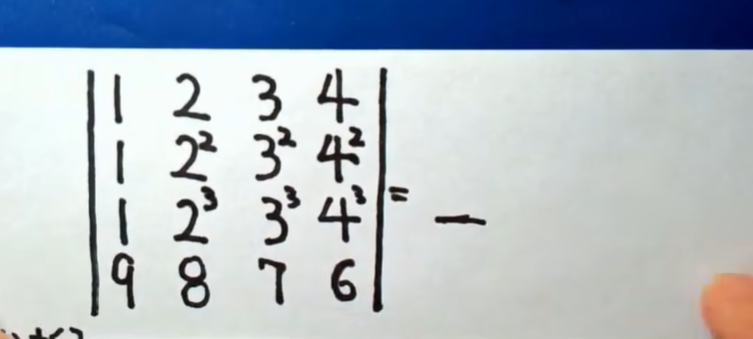 | 1 2 3 4 |
| 1 2² 3² 4² |
| 1 2³ 3³ 4³ | = —
| 9 8 7 6 |